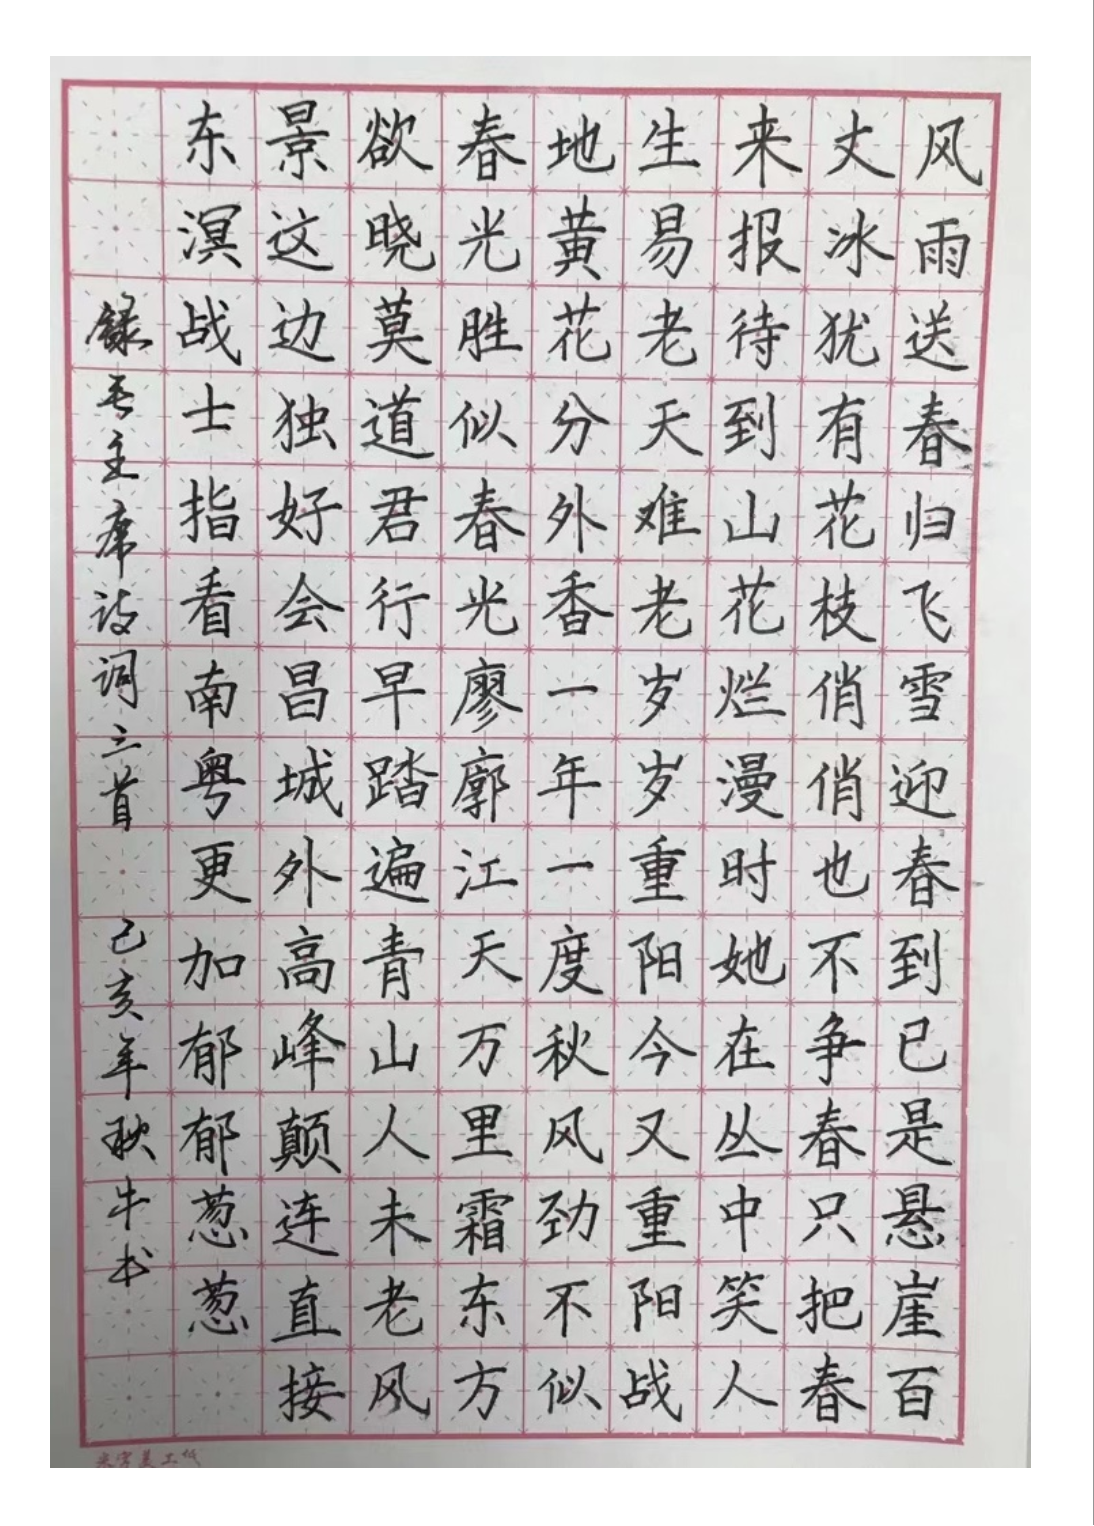 风雨送春归飞雪迎春到已是悬崖百
丈冰犹有花枝俏俏也不争春只把春
来报待到山花烂漫时她在丛中笑人
生易老天难老岁岁重阳今又重阳战
地黄花分外香一年一度秋风劲不似
春光胜似春光廖廓江天万里霜东方
欲晓莫道君行早踏遍青山人未老风
景这边独好会昌城外高峰颠连直接
东溟战士指看南粤更加郁郁葱葱
錄毛主席诗词三首 己亥年秋牛书